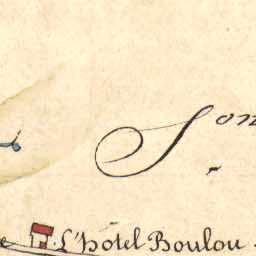 Son
L'hôtel Boulou